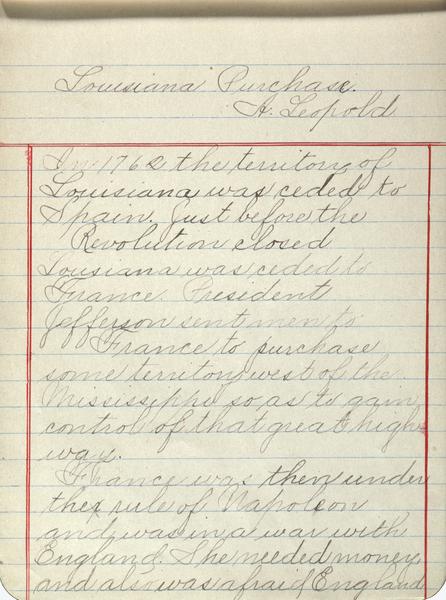 Louisiana Purchase.
A. Leopold
In 1762 the territory of
Louisiana was ceded to
Spain. Just before the
Revolution closed
Louisiana was ceded to
France. President
Jefferson sent men to
France to purchase
some territory west of the
Mississippi so as to gain
control of that great high-
way.
France was then under
the rule of Napoleon
and was in a war with
England. She needed money,
and also was afraid England